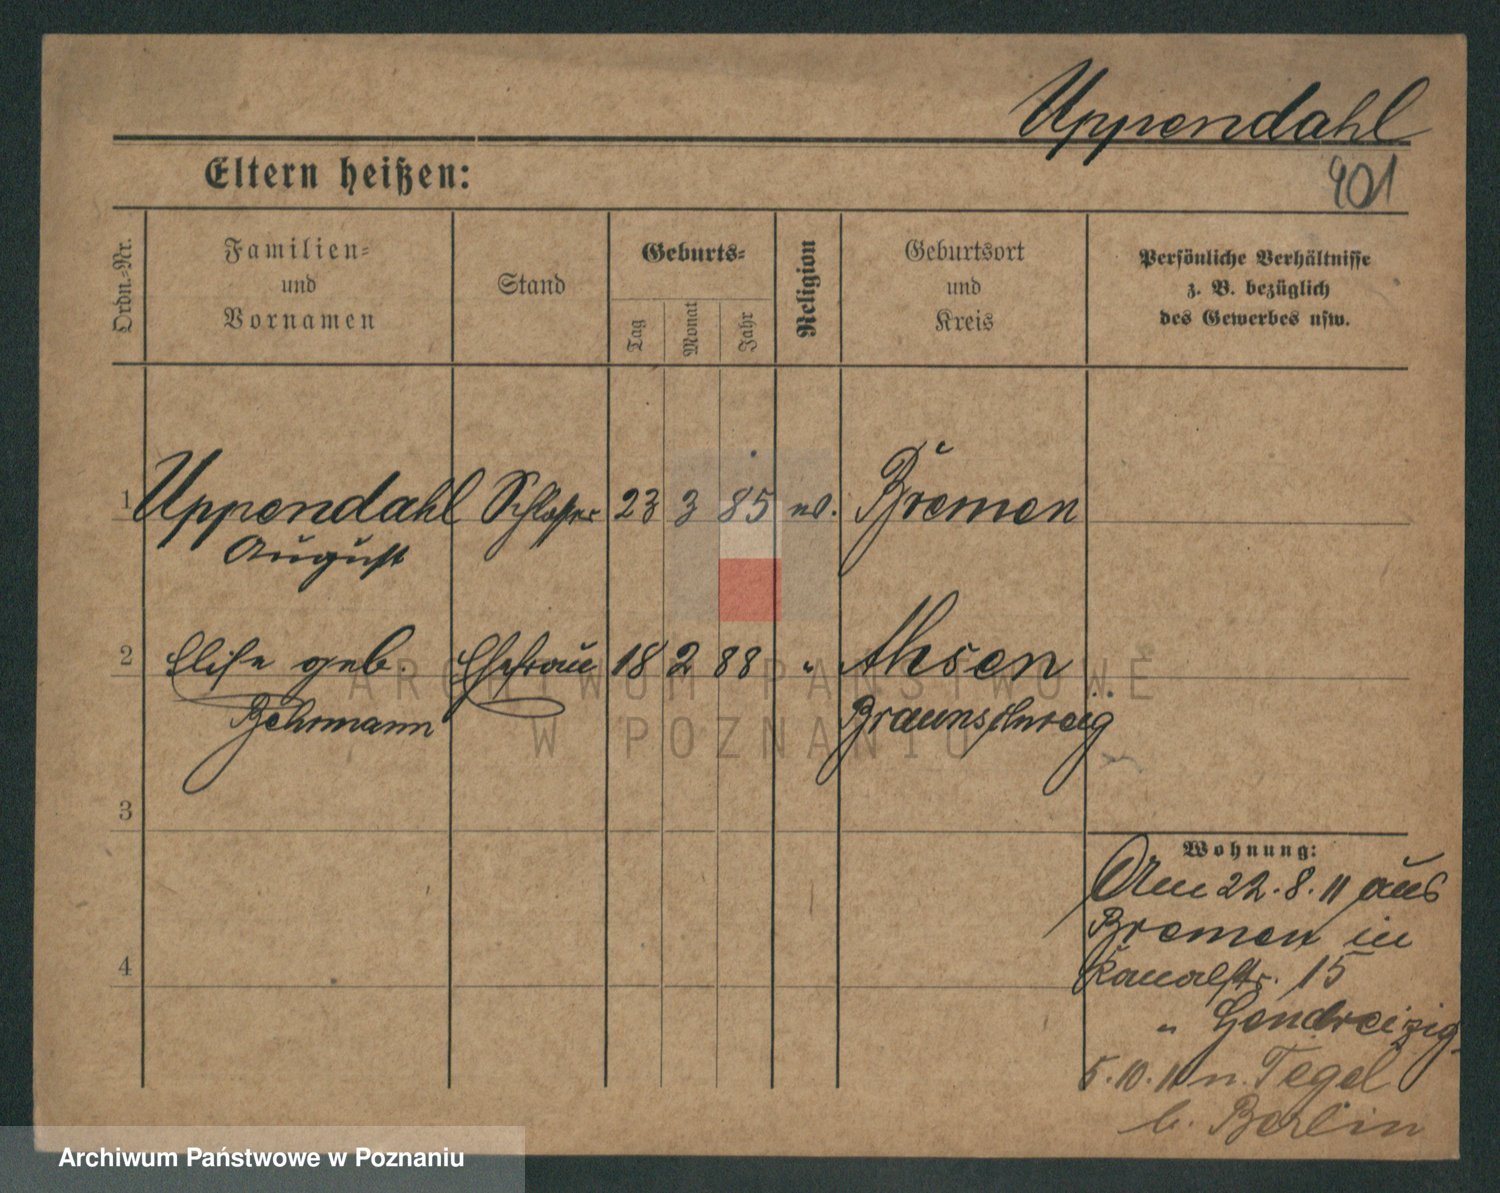 Uppendahl
901
Eltern heißen:
Ordn.-Nr.
Familien-
und
Vornamen
Stand
Geburts-
Tag
Monat
Jahr
Religion
Geburtsort
und
Kreis
Persönliche Verhältnisse
z. B. bezüglich
des Gewerbes usw.
1 Uppendahl Schlosser 23 3 85 ev. Bremen
August
2 Elise geb. Ehefrau 18 2 88 " Ahsen
Behrmann Braunschweig
3
Wohnung:
Am 22.8.11 aus
Bremen in
4
Kanalstr. 15
"
5.10.11 n. Tegel
b. Berlin
ARCHIWUM PAŃSTWOWE
W POZNANIU
Archiwum Państwowe w Poznaniu